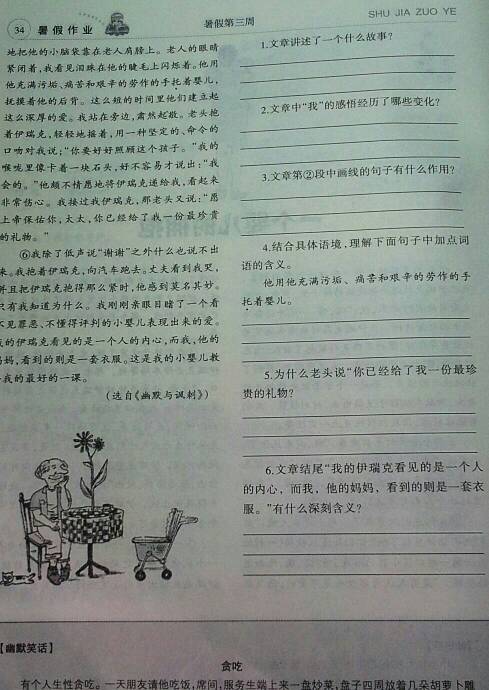 34 暑假作业
暑假第三周
SHU JIA ZUO YE
地把他的小脑袋靠在老人肩膀上。老人的眼睛
紧闭着,我看见泪珠在他的睫毛上闪烁着。他用
他充满污垢、痛苦和艰辛的劳作的手托着婴儿,
抚摸着他的后背。这么短的时间里他们建立起
这么深厚的爱。我站在旁边,肃然起敬。老头抱
着伊瑞克,轻轻地摇着,用一种坚定的、命令的
口吻对我说:“你要好好照顾这个孩子。”我的
喉咙里像卡着一块石头,好不容易才说出:“我
会的。”他颇不情愿地将伊瑞克递给我,看起来
非常伤心。我接过我伊瑞克,那老头又说:“愿
上帝保佑你,太太,你已经给了我一份最珍贵
的礼物。”
⑥我除了低声说“谢谢”之外什么也说不出
来。我抱着伊瑞克,向汽车跑去。丈夫看到我哭,
并且把伊瑞克抱得那么紧时,他感到莫名其妙。
只有我知道为什么。我刚刚亲眼目睹了一个看
不见罪恶、不懂得评判的小婴儿表现出来的爱。
我的伊瑞克看见的是一个人的内心,而我,他的
妈妈,看到的则是一套衣服。这是我的小婴儿教
我的最好的一课。
(选自《幽默与讽刺》)
1.文章讲述了一个什么故事?
2.文章中“我”的感悟经历了哪些变化?
3.文章第②段中画线的句子有什么作用?
4.结合具体语境,理解下面句子中加点词
语的含义。
他用他充满污垢、痛苦和艰辛的劳作的手
托着婴儿。
5.为什么老头说“你已经给了我一份最珍
贵的礼物?
6.文章结尾“我的伊瑞克看见的是一个人
的内心,而我,他的妈妈,看到的则是一套衣
服。”有什么深刻含义?
【幽默笑话】
贪吃
有个人生性贪吃。一天朋友请他吃饭,席间,服务生端上来一盘炒菜,盘子四周放着几朵胡萝卜雕